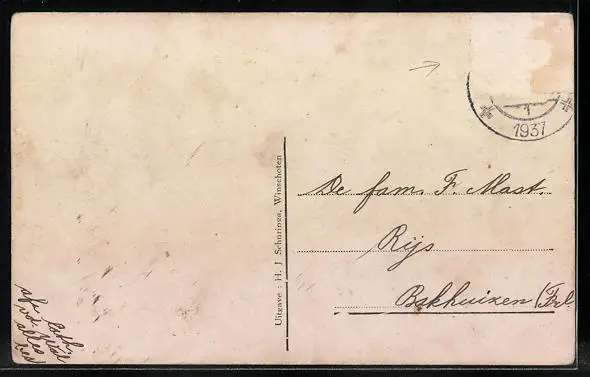 1
1937
De fam. F. Mast.
Rijs
Bakhuizen (Frl
Uitgave : H. J. Schuringa, Winschoten